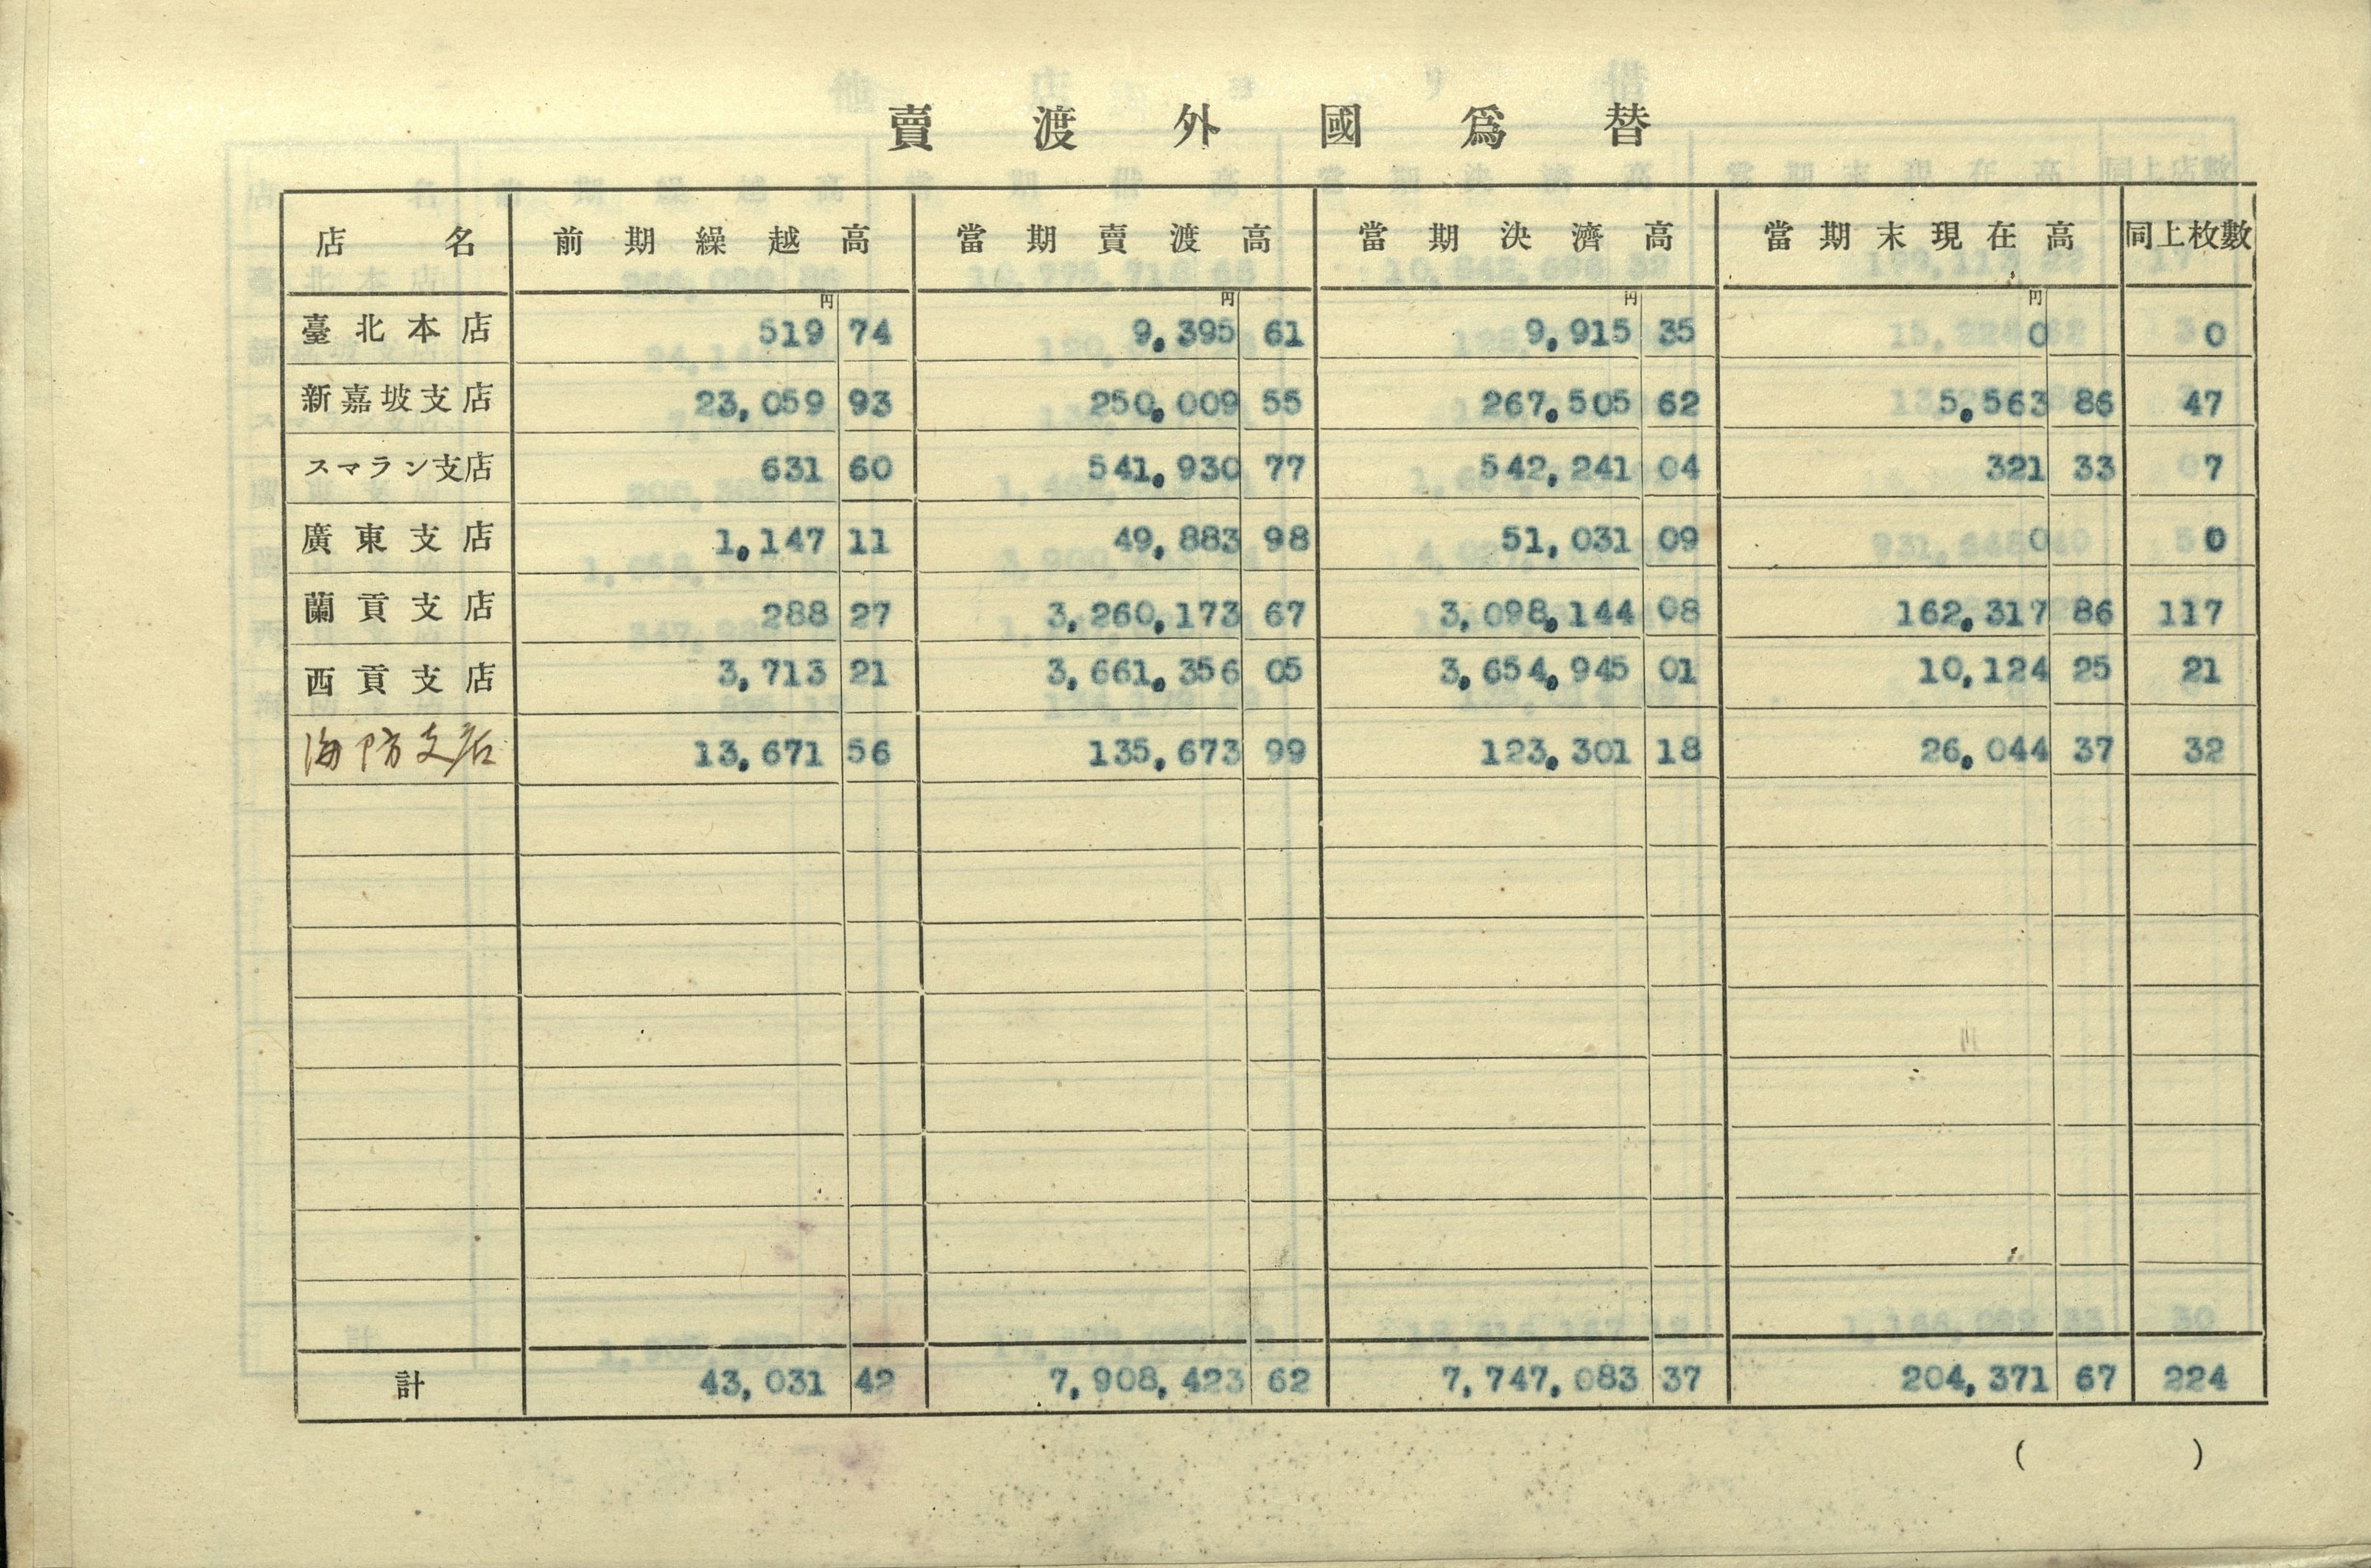 賣渡外國爲替
店名 前期繰越高 當期賣渡高 當期決濟高 當期末現在高 同上枚數
円 円 円 円
臺北本店 519 74 9,395 61 9,915 35 0 0
新嘉坡支店 23,059 93 250,009 55 267,505 62 5,563 86 47
スマラン支店 631 60 541,930 77 542,241 04 321 33 7
廣東支店 1,147 11 49,883 98 51,031 09 0 0
蘭貢支店 288 27 3,260,173 67 3,098,144 08 162,317 86 117
西貢支店 3,713 21 3,661,356 05 3,654,945 01 10,124 25 21
海防支店 13,671 56 135,673 99 123,301 18 26,044 37 32
計 43,031 42 7,908,423 62 7,747,083 37 204,371 67 224
( )